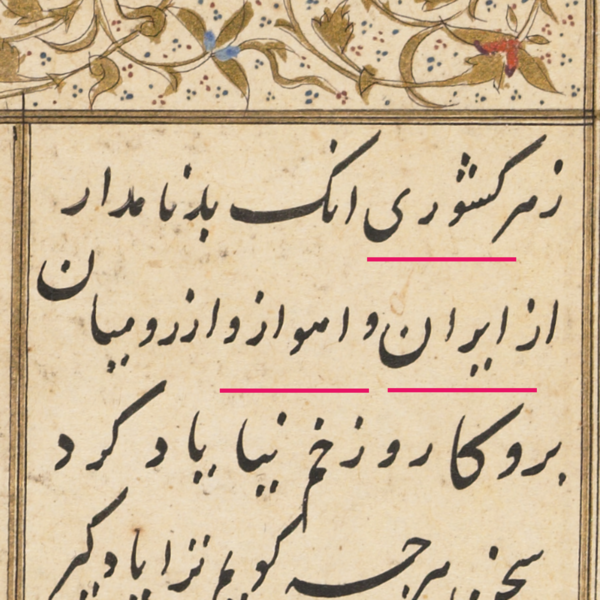 ز هر کشوری انک بد نامدار
از ایران و اهواز و از رومیان
برو کار و زخم نیا یاد کرد
سخن هرچه گویم ترا یاد گیر